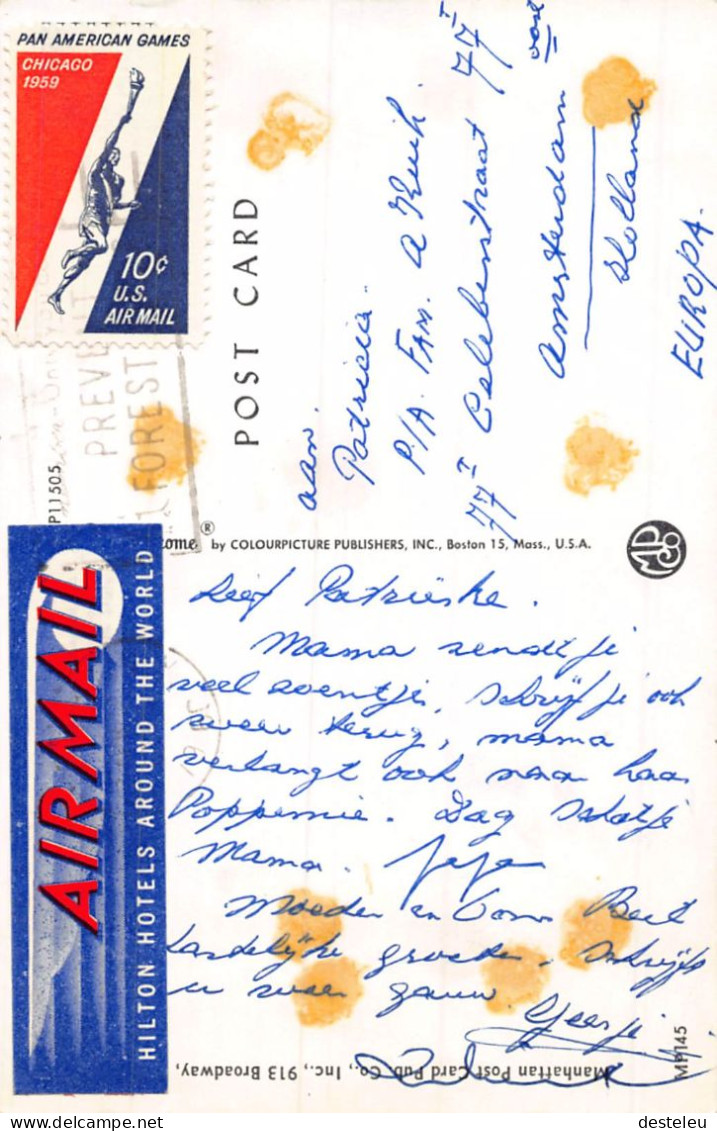 PAN AMERICAN GAMES
CHICAGO
1959
10¢
U.S.
AIR MAIL
PREVE
FOREST
POST CARD
P11505
aan.
Patricia.
P/A. FAM. A Kuik
77 I Celebesstraat 77 I
Amsterdam oost
Holland
EUROPA.
ome® by COLOURPICTURE PUBLISHERS, INC., Boston 15, Mass., U.S.A.
AIRMAIL
HILTON HOTELS AROUND THE WORLD
Lief Patrieske.
Mama zendt je
veel zoentjes, schrijf je ook
weer terug, mama
verlangt ook naar haar
Poppemie. Dag schatje
Mama.
Moeder en Bert
hartelijke groeten, schrijft
u weer gauw.
Manhattan Post Card Pub. Co., Inc., 913 Broadway,
MP145
desteleu